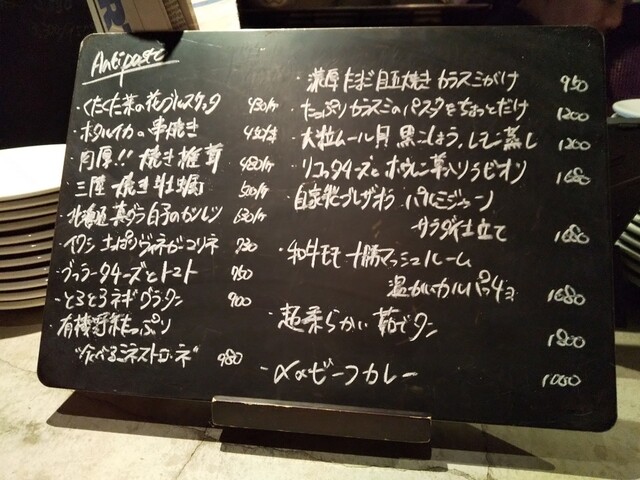 Antipasto
・くたくた菜の花ブルスケッタ 430/ヶ
・ホタルイカの串焼き
・肉厚!! 焼き椎茸 480/ヶ
・三陸 焼き牡蠣 500/ヶ
・北海道 真ダラ白子のカツレツ 630/ヶ
・イワシ さっぱりヴィネガーマリネ 730
・ブッラータチーズとトマト 780
・とろとろネギグラタン 900
・有機野菜たっぷり
"食べるミネストローネ" 980
・濃厚たまご 目玉焼き カラスミがけ 950
・たっぷりカラスミのパスタをちょっとだけ 1200
・大粒ムール貝 黒こしょう、レモン蒸し 1200
・リコッタチーズとホウレン草入りラビオリ 1680
・自家製ブレザオラ パルミジャーノ
サラダ仕立て 1680
・和牛モモ 十勝マッシュルーム
温かいカルパッチョ 1680
・超柔らかい 茹でタン 1800
・〆のビーフカレー 1050